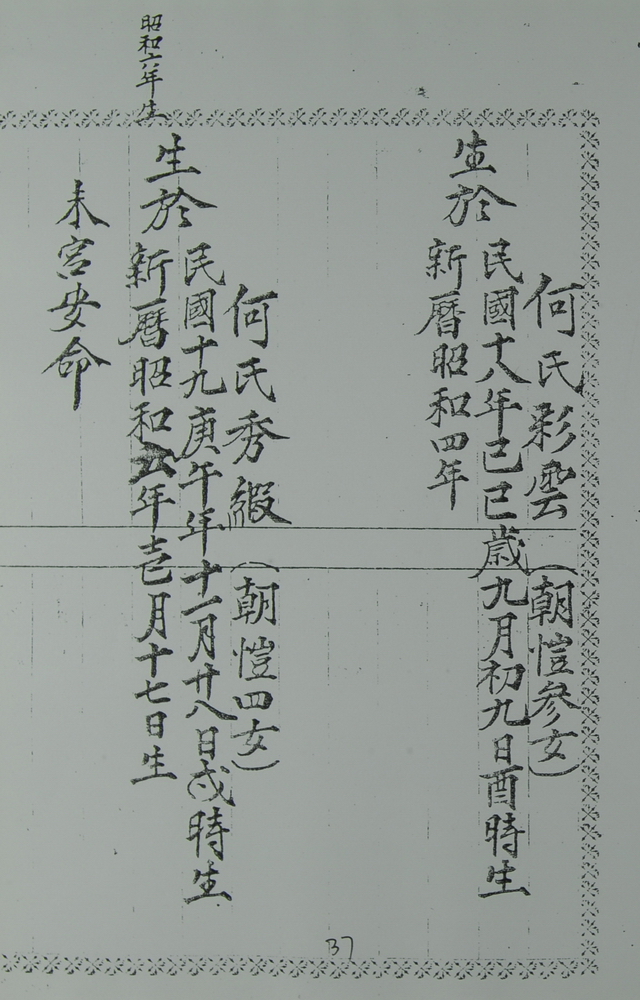 何氏彩雲(朝愷參女)
生於
民國十八年己巳歲九月初九日酉時生
新曆昭和四年
何氏秀緞(朝愷四女)
生於
民國十九庚午年十一月廿八日戌時生
新曆昭和五年壱月十七日生
昭和六年生
未宮安命
B7